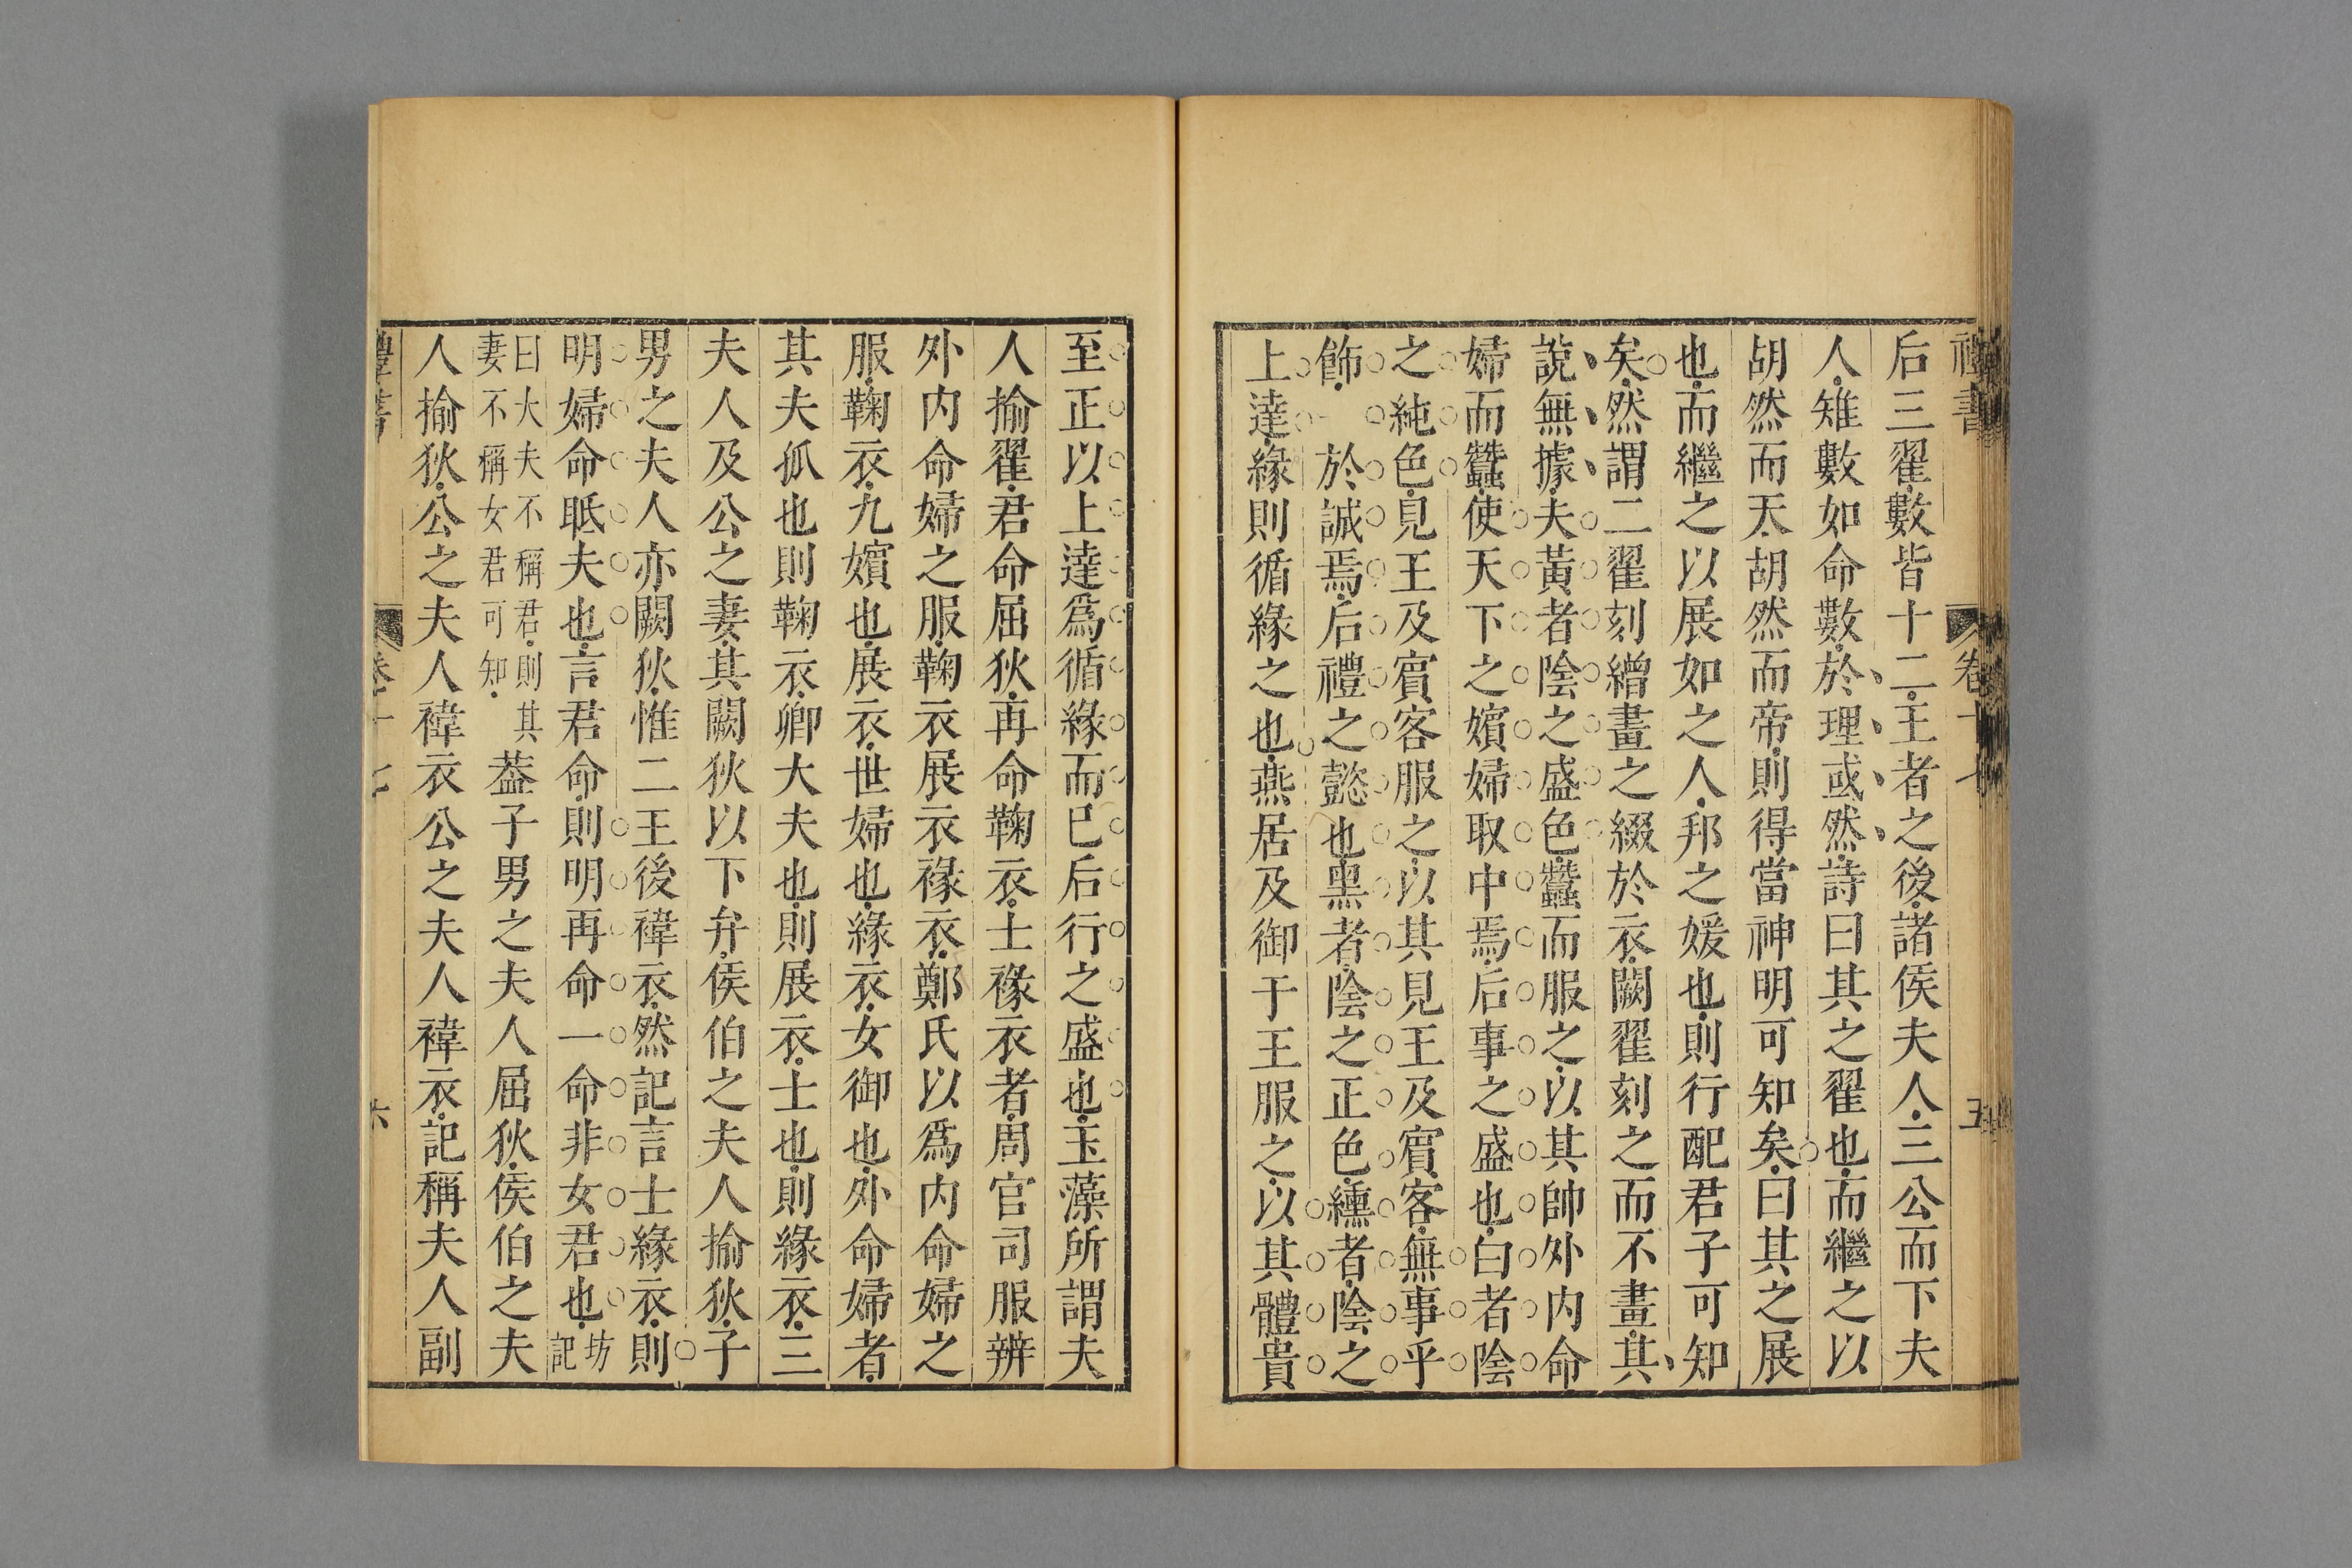 禮書
卷十七
五
后三翟數皆十二王者之後諸侯夫人三公而下夫
人雉數如命數於理或然詩曰其之翟也而繼之以
胡然而天胡然而帝則得當神明可知矣曰其之展
也而繼之以展如之人邦之媛也則行配君子可知
矣然謂二翟刻繒畫之綴於衣闕翟刻之而不畫其
說無據夫黃者陰之盛色蠶而服之以其帥外内命
婦而蠶使天下之嬪婦取中焉后事之盛也白者陰
之純色見王及賓客服之以其見王及賓客無事乎
飾一於誠焉后禮之懿也黑者陰之正色纁者陰之
上達緣則循緣之也燕居及御于王服之以其體貴
至正以上達爲循緣而已后行之盛也玉藻所謂夫
人揄翟君命屈狄再命鞠衣士褖衣者周官司服辨
外内命婦之服鞠衣展衣褖衣鄭氏以爲内命婦之
服鞠衣九嬪也展衣世婦也緣衣女御也外命婦者
其夫孤也則鞠衣卿大夫也則展衣士也則緣衣三
夫人及公之妻其闕狄以下弁侯伯之夫人揄狄子
男之夫人亦闕狄惟二王後褘衣然記言士緣衣則
明婦命眂夫也言君命則明再命一命非女君也坊記
曰大夫不稱君則其妻不稱女君可知葢子男之夫人屈狄侯伯之夫
人揄狄公之夫人褘衣公之夫人褘衣記稱夫人副
禮書
卷十七
六